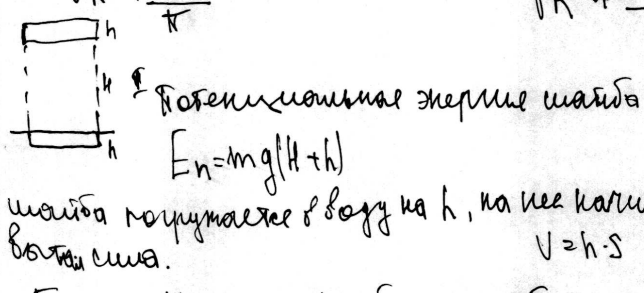 π
h
H
I Потенциальная энергия шайба
Eп=mg(H+h)
h
шайба погружается в воду на h, на нее начи
вытал сила.
V=h·S